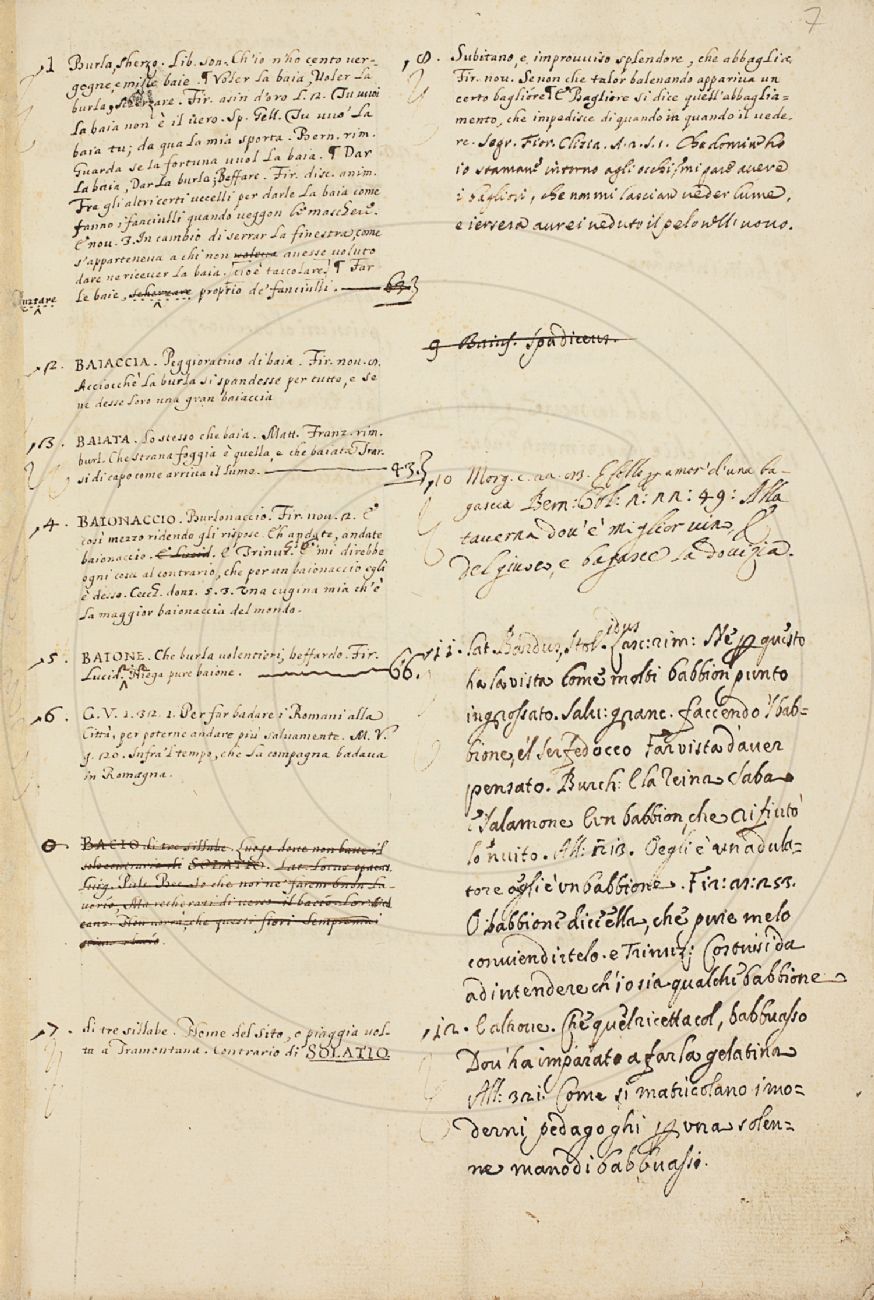 7
1 Burla, Scherzo. Lib. son. Ch'io n'ho cento ver-
gogne, e mille baie. ¶ Voler la baia, Voler la
burla, Scherzare. Fir. asin d'oro L. 12. Tu vuoi
la baia non è il vero. Sp. Gell. Tu vuo' la
baia tu; da qua la mia sporta. Bern. rim.
Guarda se la fortuna vuol la baia. ¶ Dar
la baia, Dar la burla, Beffare. Fir. disc. anim.
Tra gli altri certi uccelli per darle la baia come
fanno i fanciulli quando veggon le maschere.
E nov. 3. In cambio di serrar la finestra, come
s'apparteneva a chi non avesse voluto
dare ne ricever la baia. cioè taccolare. ¶ Far
le baie, scherzare proprio de' fanciulli. 63.
2. BAIACCIA. Peggiorativo di baia. Fir. nov.
Acciocchè la burla si spandesse per tutto, e se
ne desse loro una gran baiaccia
3. BAIATA. Lo stesso che baia. Matt. Franz. rim.
burl. Che strana foggia è quella, e che baiata Trar-
si di capo come arriva il lume. 43.
4. BAIONACCIO. Burlonaccio. Fir. nov. 2. E
così mezzo ridendo gli rispose. Eh andate, andate
baionaccio. E Lucid. E Trinuz. E' mi direbbe
ogni cosa al contrario, che per un baionaccio egli
è desso. Cecch. donz. 5. 3. Una cugina mia ch'è
la maggior baionaccia del mondo.
5. BAIONE. Che burla volentieri, beffardo. Fir.
Lucid. Niega pure baione. 66.
6. G. V. 1. 312. 1. Per far badare i Romani alla
Città, per poterne andare più salvamente. M. V.
9. 120. Infra 'l tempo, che la compagna badava
in Romagna.
BACIO di tre sillabe. Luogo dove non batte il
sole contrario di SOLATIO. Lat. Locus opacus
7. di tre sillabe. Nome del sito, o piaggia vol-
ta a Tramontana. Contrario di SOLATIO
8. Subitano, e, improvviso splendore, che abbaglia.
Fir. nov. Se non che talor balenando appariva un
certo bagliore ¶ E Bagliore si dice quell'abbaglia=
mento, che impedisce di quando in quando il vede-
re. Segr. Fior. Clizia. A. 2. S. 1. Che domin ho
io stamane intorno agli occhi? mi pare avere
i bagliori, che non mi lascian veder lume,
e iersera aurei veduto il pelo nell'uovo.
9 Baius. Spadiceus.
10 Morg. c. E felle per amor d'una ba-
gascia Bern: Orl: 49: Alla
taverna dov'è miglior vino, E
del giuoco, e bagasce la dovizia.
11. Lat. Bardus, Stolidus Lasc: rim: Nè per questo
ha la vista come molti babbion punto
ingrossato. Salv: granc. faccendo 'l bab-
bione, e 'l ser Fedocco Far vista d'aver
pensato. Burch: E la Reina Saba
E Salamone Eun babbion, che rifiutò
lo 'nvito. All: 213. O egli è un adula-
tore o gli è un babbione. Fir: as: 253.
O babbione diccella, che puie melo
conviendirtelo. e Trinuz: Costui si dà
ad intendere ch'io sia qualche babbione
12. Calzone. Che quel ricettacol, babbuasso
Dov'ha imparato a far la gelatina
All: 321: Come si matricolano i mo-
derni pedagoghi per una solen=
ne mano di babbuassi.